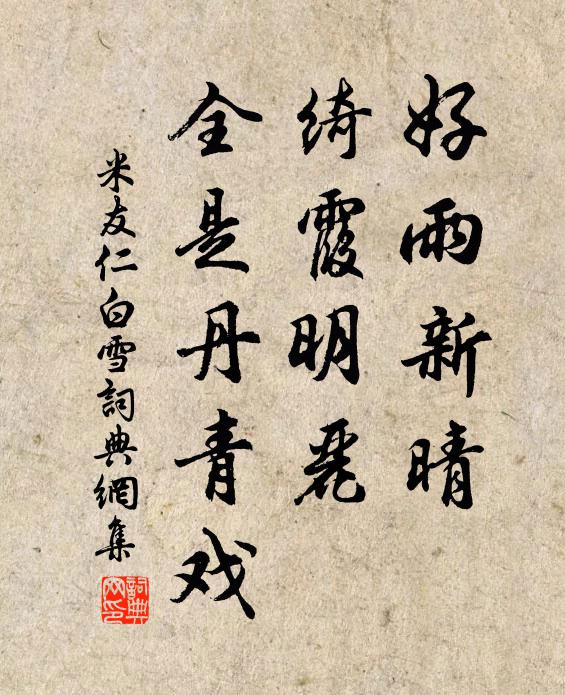 好雨新晴
綺霞明麗
全是丹青戏
米友仁白雪詞典網集
詞典网印